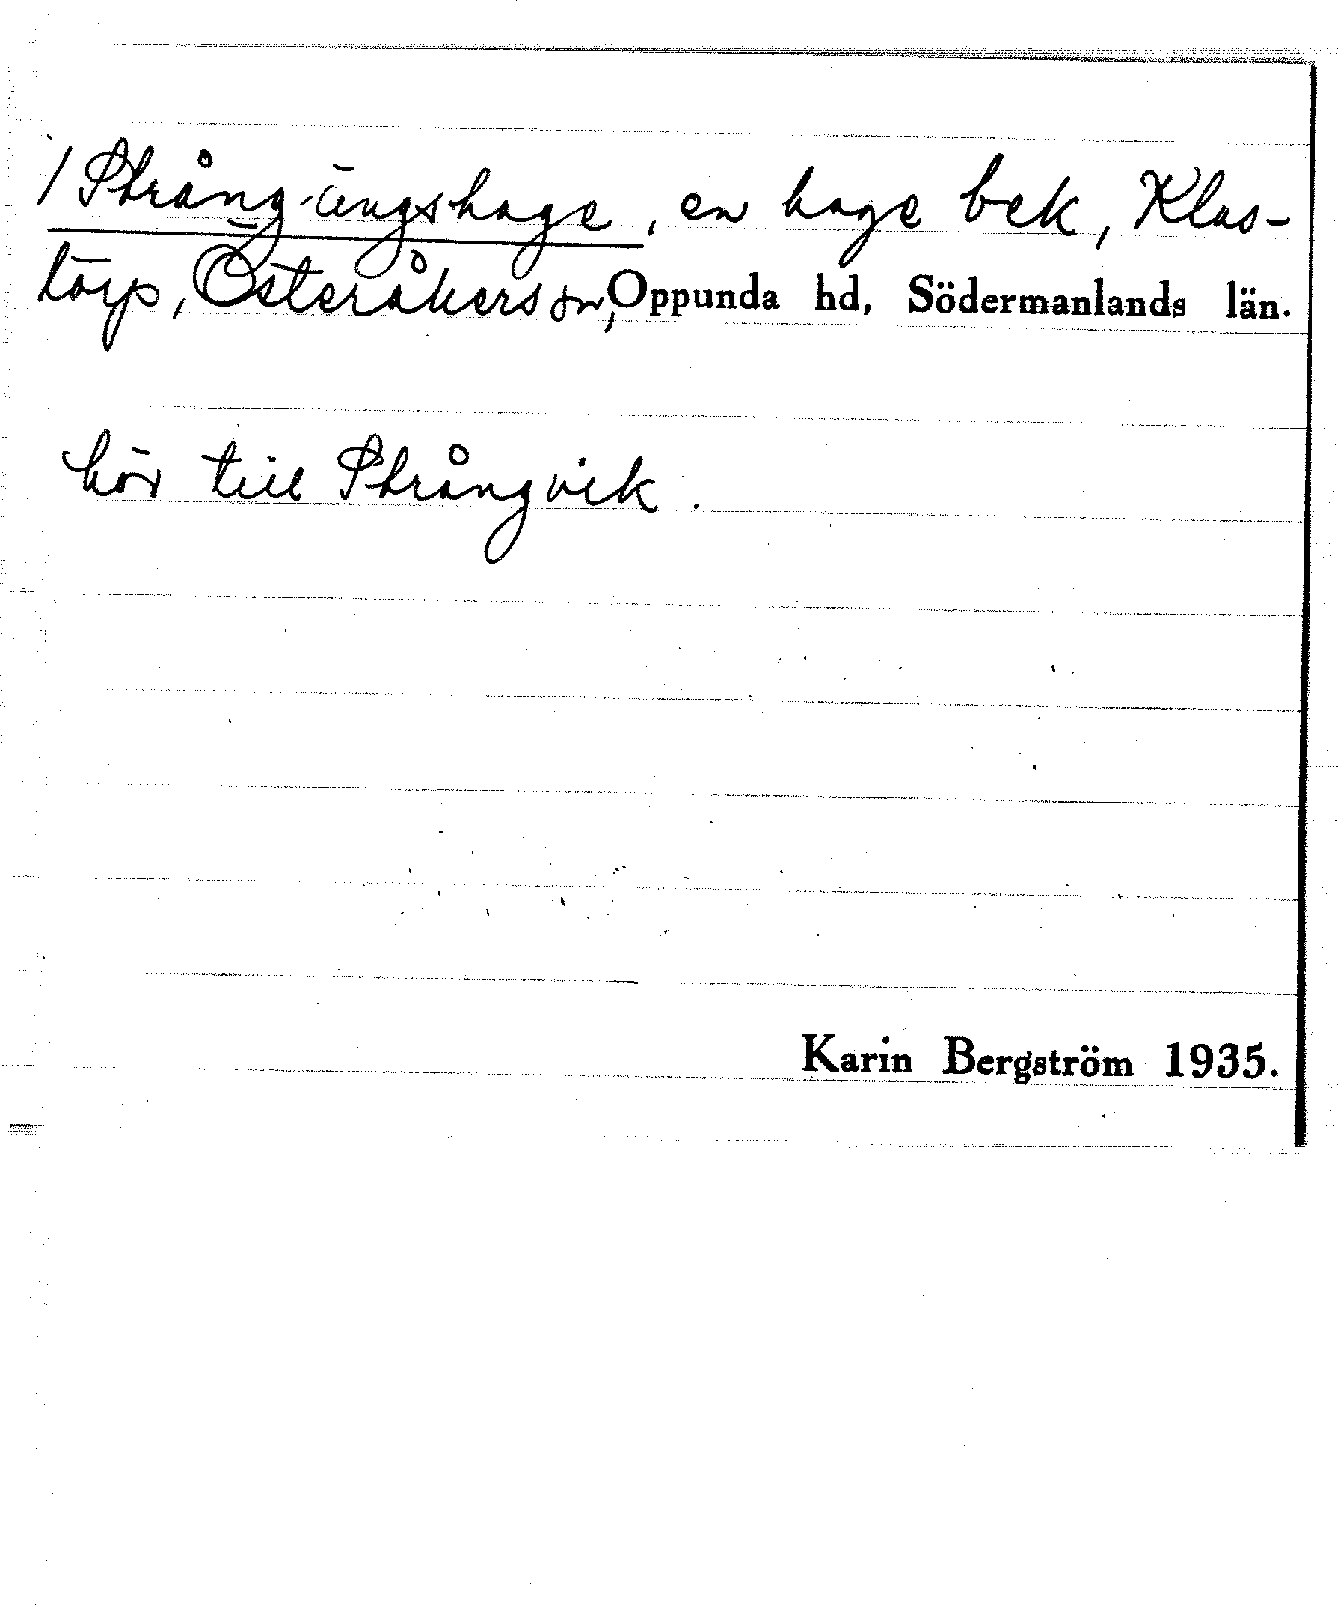 / Strång-ängshage, en hage bek, Klas-
torp, Österåkers sn, Oppunda hd, Södermanlands län.
hör till Strångvik.
Karin Bergström 1935.